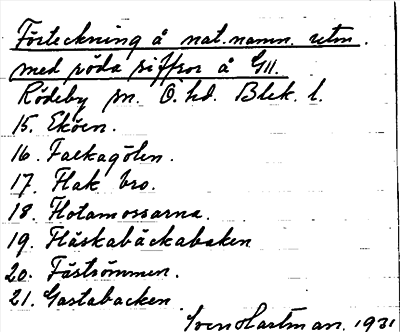 Förteckning å nat.namn. utm.
med röda siffror å G11.
Rödeby sn. Ö. hd. Blek. l.
15. Eköen.
16. Falkagölen.
17. Flak bro.
18. Flotamossarna.
19. Fläskabäckabaken
20. Fästsömmen.
21. Gastabacken
Sven Hartman. 1931